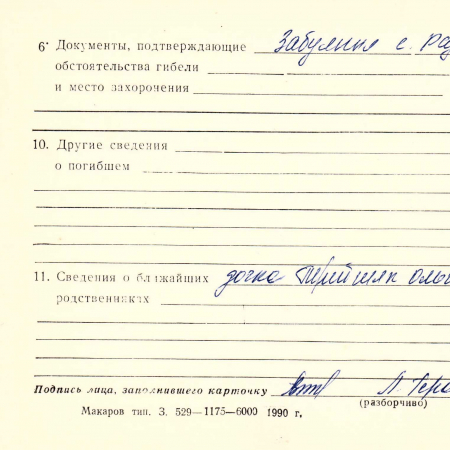 6· Документы, подтверждающие
обстоятельства гибели
и место захоронения
10. Другие сведения
о погибшем
11. Сведения о ближайших дочка
родственниках
Подпись лица, заполнившего карточку
(разборчиво)
Макаров тип. З. 529—1175—6000 1990 г.